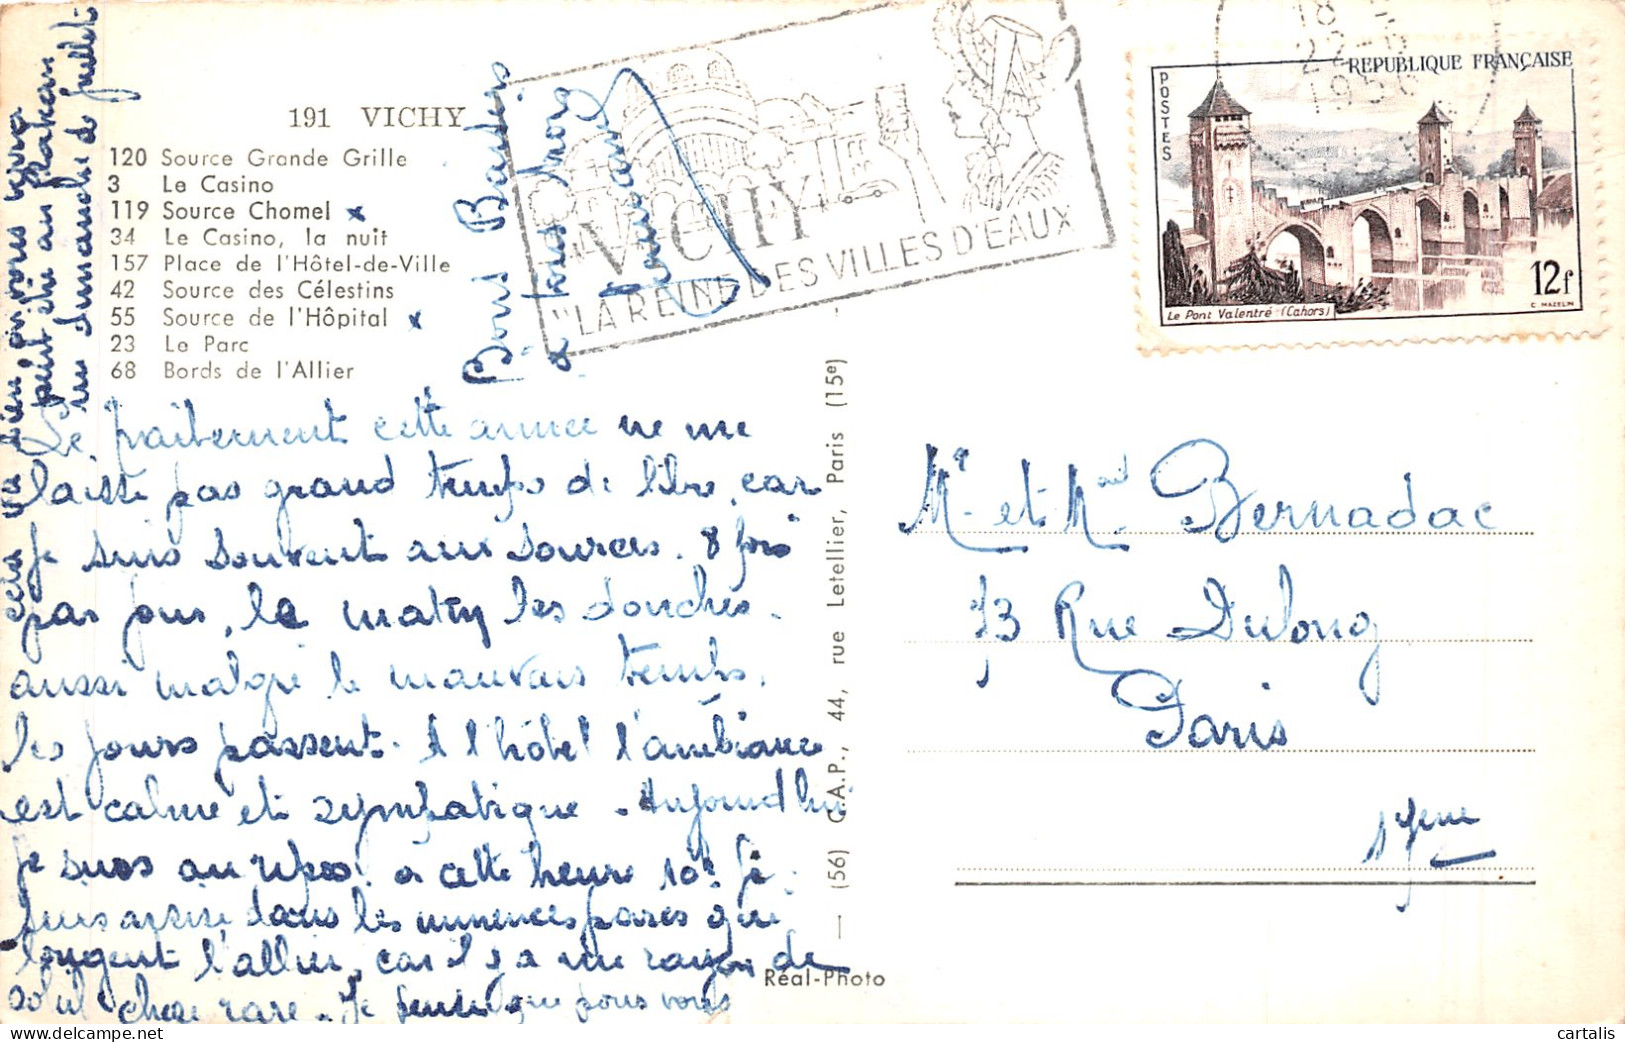 191 VICHY
120 Source Grande Grille
3 Le Casino
119 Source Chomel x
34 Le Casino, la nuit
157 Place de l'Hôtel-de-Ville
42 Source des Célestins
55 Source de l'Hôpital x
23 Le Parc
68 Bords de l'Allier
Le traitement cette année ne me
laisse pas grand temps de libre, car
je suis souvent aux sources. 8 fois
par jour, le matin les douches.
aussi malgré le mauvais temps,
les jours passent. A l'hôtel l'ambiance
est calme et sympatique. Aujourd'hui
je suis au repos! à cette heure 10h je
suis assise dans les immences parcs qui
longent l'allier, car il y a un rayon de
soleil chose rare. Je pense que pour vous
cela va bien, on vous verra
peut être au
un dimanche de Juillet
Bons Baisers
à tous trois
VICHY
"LA REINE DES VILLES D'EAUX
18
22
1956
REPUBLIQUE FRANÇAISE
POSTES
12f
Le Pont Valentré (Cahors)
C. MAZELIN
Mr et Mme Bernadac
73 Rue Dulong
Paris
17eme
(56) C.A.P., 44, rue Letellier, Paris (15e)
Réal-Photo
cartalis
delcampe.net